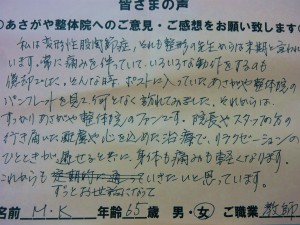 皆さまの声
◎あさがや整体院へのご意見・ご感想をお願い致します◎
私は変形性股関節症、それも整形の先生からは末期と言われて
います。常に痛みを伴っていて、いろいろな動作をするのも
億劫でした。そんな時、ポストに入っていたあさがや整体院の
パンフレットを見て、何となく訪れてみました。それからは、
すっかりあさがや整体院のファンです。院長やスタッフの方の
行き届いた配慮や心を込めた治療で、リラクゼーションの
ひとときが過せると共に、身体も痛みも軽くなります。
これからも
ずっとお世話になって いきたいと思っています。
名前 M・K 年齢 65歳 男・女 ご職業 教師